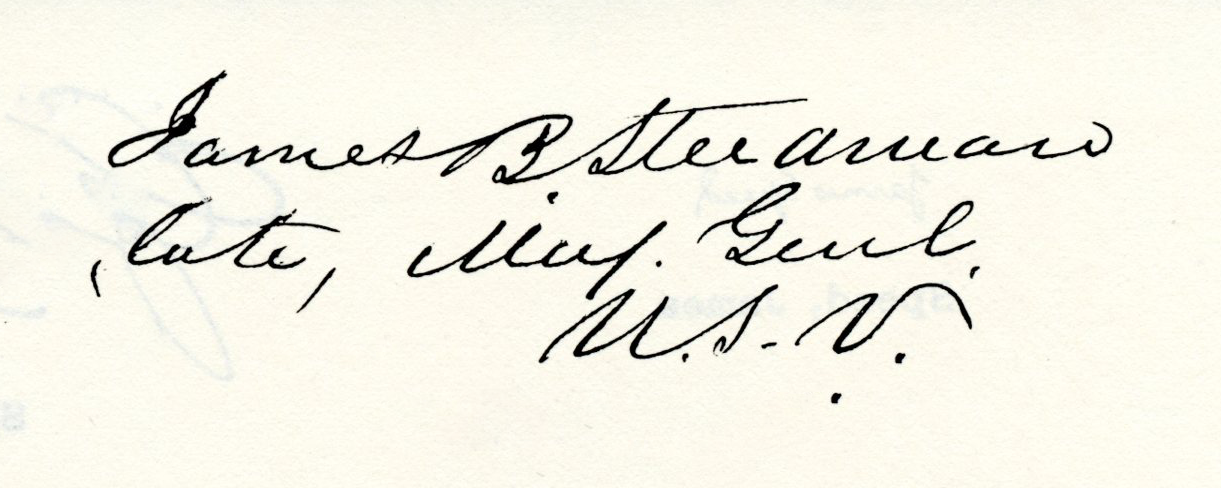 James B. Steedman
late, Maj. Genl.
U.S.V.